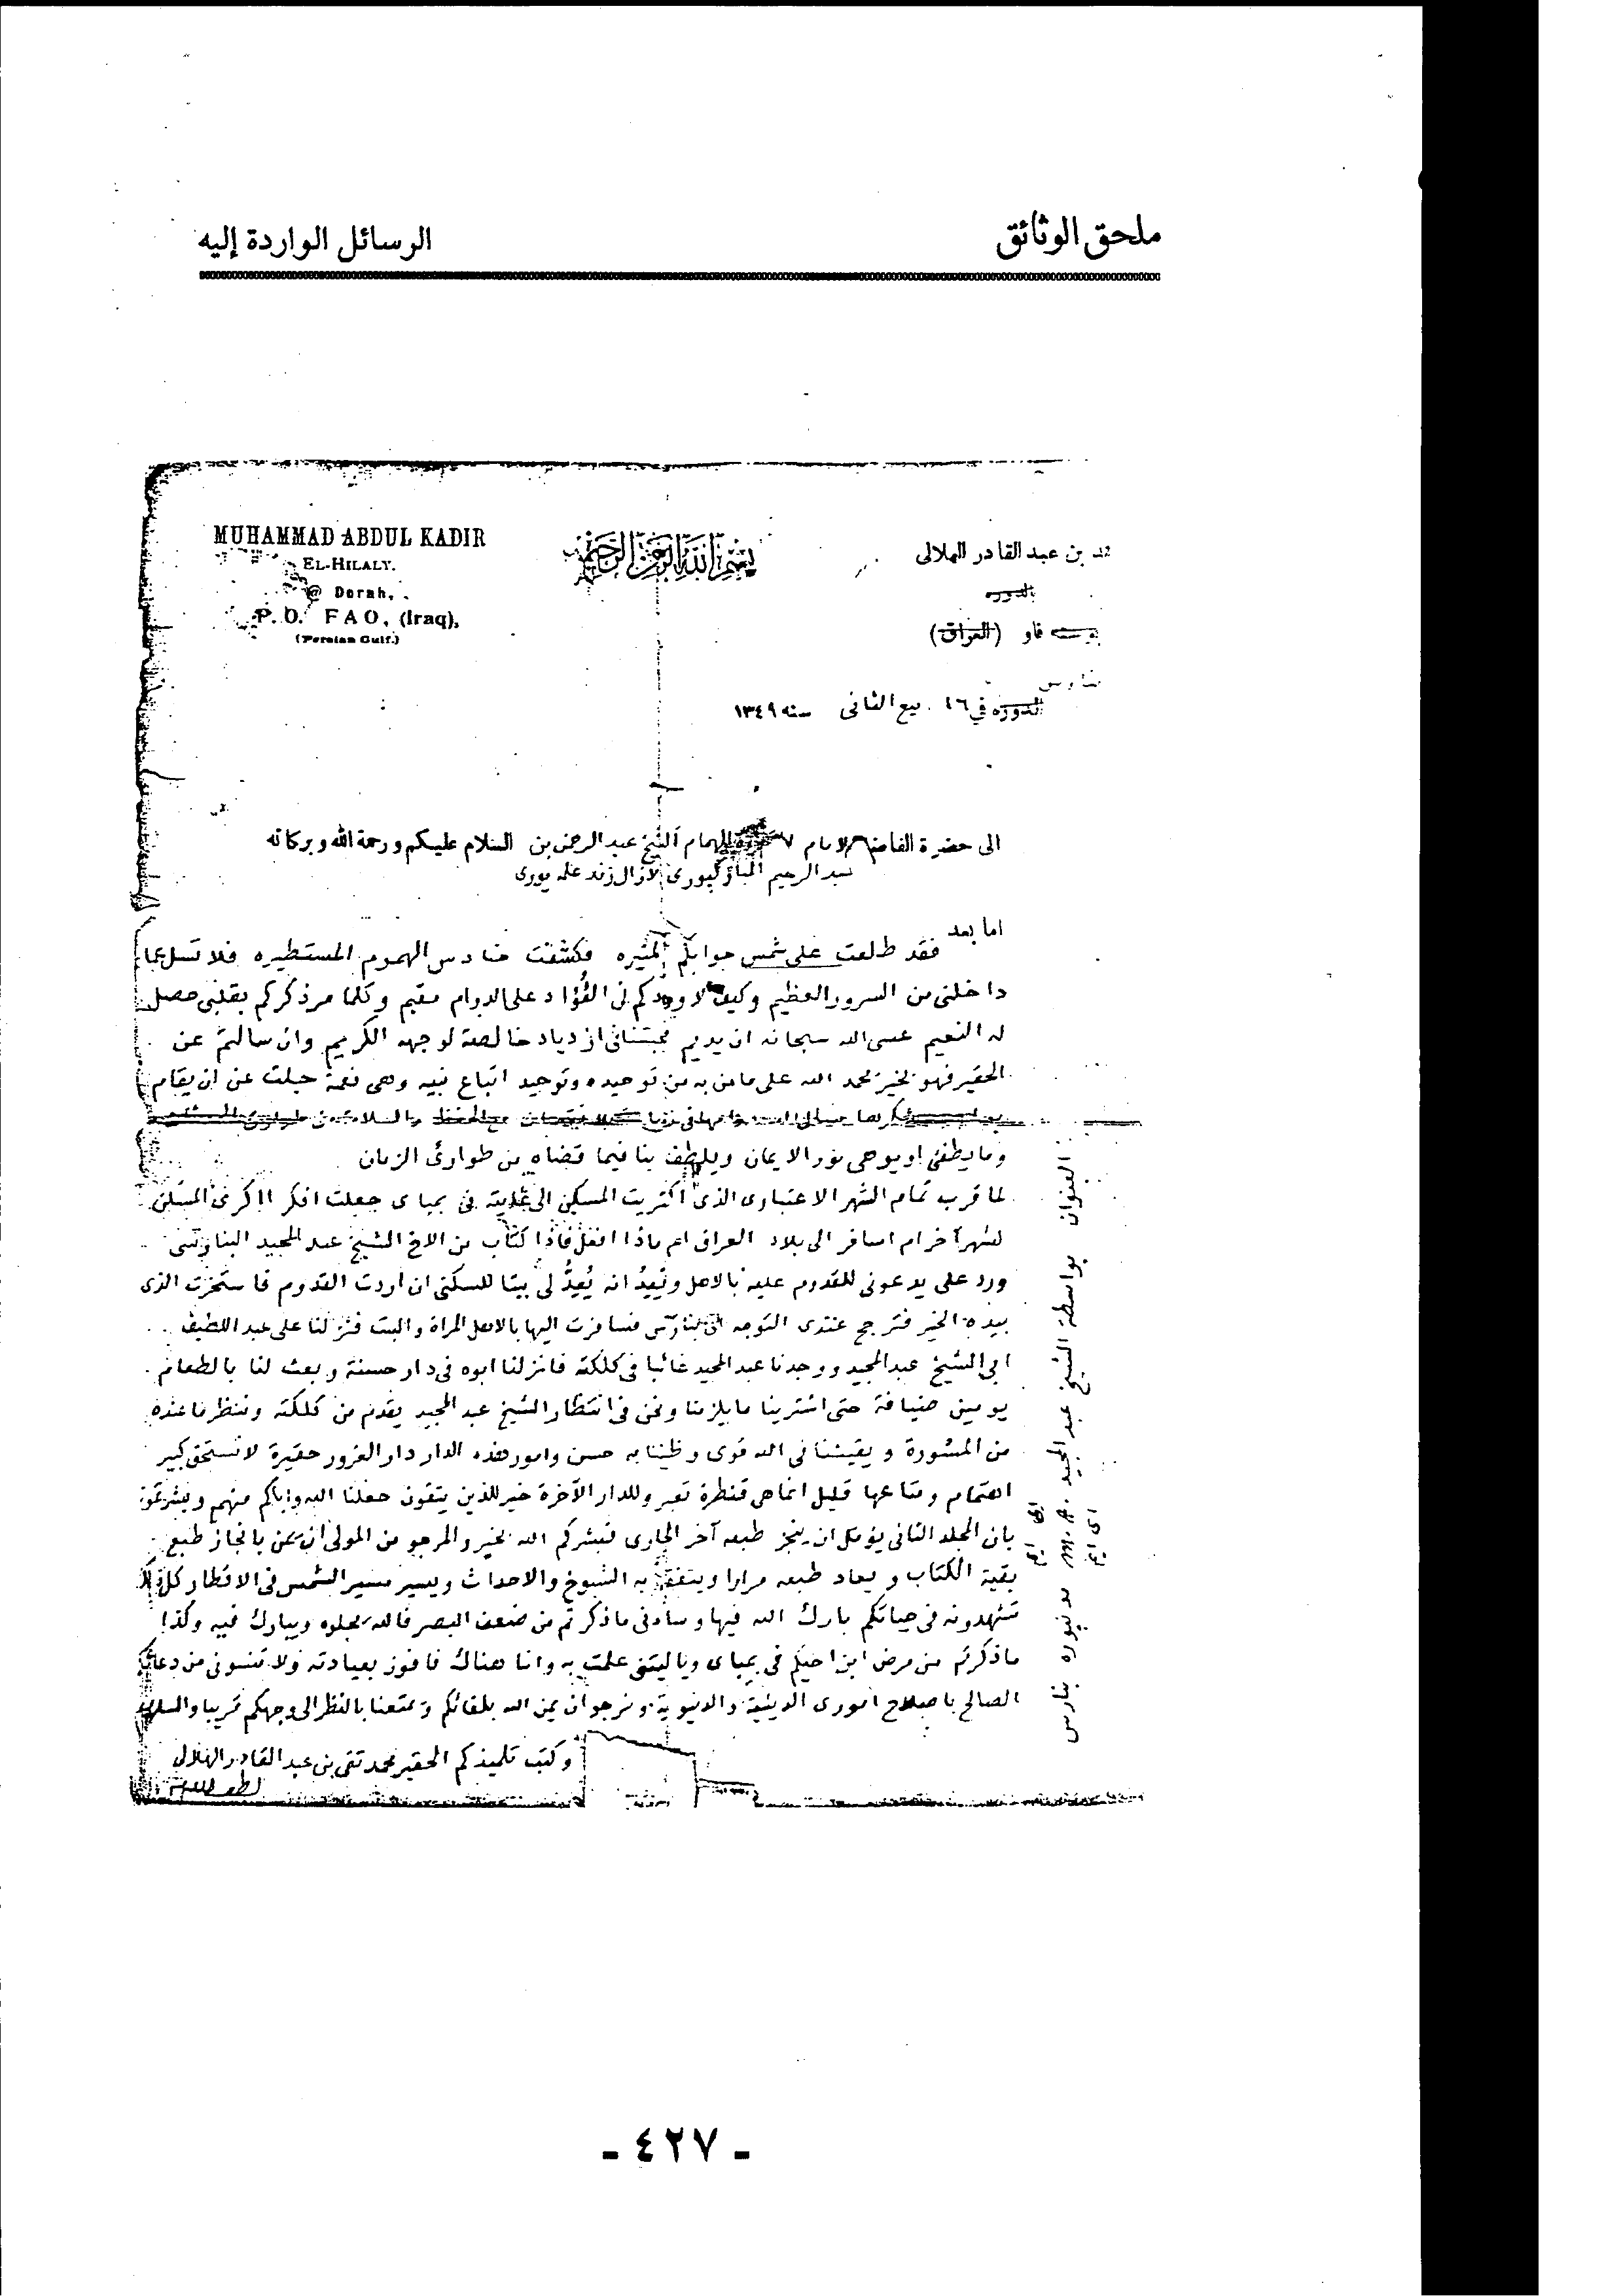 ملحق الوثائق
الرسائل الواردة إليه
MUHAMMAD ABDUL KADIR
EL-HILALY.
@ Dorah,
P. O. FAO, (Iraq),
(Persian Gulf.)
بسم الله الرحمن الرحيم
بن عبد القادر الهلالى
بالدوره
فاو (العراق)
بنارس
الدوره في ١٦ ربيع الثانى سنه ١٣٤٩
الى حضرة الامام الهمام الشيخ عبد الرحمن بن السلام عليكم ورحمة الله وبركاته
عبد الرحيم المباركفورى لازال زند علمه يورى
اما بعد
فقد طلعت على شمس جوابكم المنيره فكشفت حنادس الهموم المستطيره فلا تسل عما
داخلنى من السرور العظيم وكيف لا وودكم فى الفُؤاد على الدوام مقيم وكلما مر ذكركم بقلبى حصل
له النعيم عسى الله سبحانه ان يديم محبتنا فى ازدياد خالصة لوجهه الكريم وان سالتم عن
الحقير فهو بخير نحمد الله على ما من به من توحيده وتوحيد اتباع نبيه وهى نعمة جلت عن ان يقام
وما يطفئ او يوهى نور الايمان ويلطف بنا فيما قضاه من طوارئ الزمان
لما قرب تمام الشهر الاعتبارى الذى اكتريت المسكن الى غايته فى بمباى جعلت افكر أاكرى المسكن
لشهر آخر ام اسافر الى بلاد العراق ام ماذا افعل فاذا كتاب من الاخ الشيخ عبد المجيد البنارسى
ورد على يدعونى للقدوم عليه بالاهل ويَعِدُ انه يُعِدُّ لى بيتا للسكنى ان اردت القدوم فاستخرت الذى
بيده الخير فترجح عندى التوجه الى بنارس فسافرت اليها بالاهل المراة والبنت فنزلنا على عبد اللطيف
ابى الشيخ عبد المجيد ووجدنا عبد المجيد غائبا فى كلكته فانزلنا ابوه فى دار حسنة وبعث لنا بالطعام
يومين ضيافة حتى اشترينا ما يلزمنا ونحن فى انتظار الشيخ عبد المجيد يقدم من كلكته وننظر ما عنده
من المشورة ويقيننا فى الله قوى وظننا به حسن وامور هذه الدار دار الغرور حقيرة لا تستحق كبير
اهتمام ومتاعها قليل انما هى قنطرة تعبر وللدار الآخرة خير للذين يتقون جعلنا الله واياكم منهم وبشرتمونى
بان المجلد الثانى يؤمل ان ينجز طبعه آخر الجارى فبشركم الله بخير والمرجو من المولى ان يمن بانجاز طبع
بقية الكتاب ويعاد طبعه مرارا وينتفع به الشيوخ والاحداث ويسير مسير الشمس فى الاقطار كل ذلك
تشهدونه فى حياتكم بارك الله فيها وساءنى ما ذكرتم من ضعف البصر فالله يجلوه ويبارك فيه وكذا
ما ذكرتم من مرض ابن اخيكم فى بمباى وياليتنى علمت به وانا هناك فافوز بعيادته ولا تنسونى من دعائكم
الصالح باصلاح امورى الدينية والدنيوية ونرجو ان يمن الله بلقائكم ويمتعنا بالنظر الى وجهكم قريبا والسلام
وكتب تلميذكم الحقير محمد تقى بن عبد القادر الهلالى
العنوان بواسطة الشيخ عبد المجيد بنارس
- ٤٢٧ -